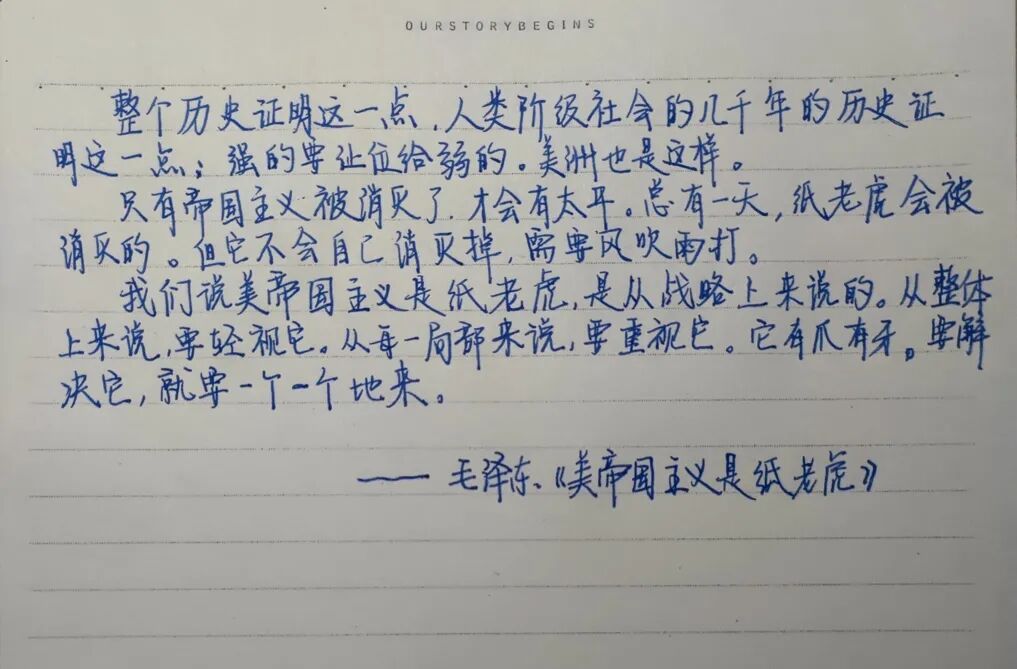 OURSTORYBEGINS
整个历史证明这一点,人类阶级社会的几千年的历史证
明这一点;强的要让位给弱的。美洲也是这样。
只有帝国主义被消灭了,才会有太平。总有一天,纸老虎会被
消灭的。但它不会自己消灭掉,需要风吹雨打。
我们说美帝国主义是纸老虎,是从战略上来说的。从整体
上来说,要轻视它。从每一局部来说,要重视它。它有爪有牙。要解
决它,就要一个一个地来。
—— 毛泽东、《美帝国主义是纸老虎》